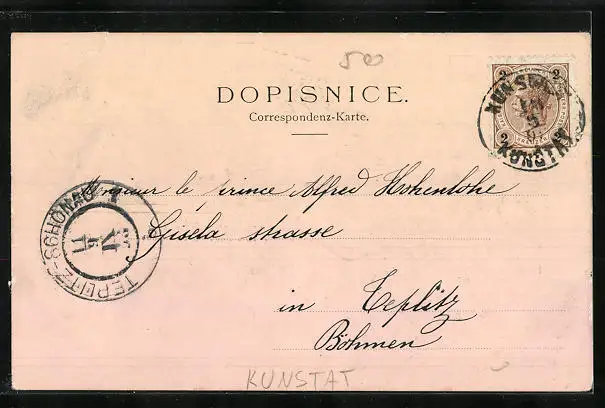 500
DOPISNICE.
Correspondenz-Karte.
2 2
KUNSTADT
KUNSTAT
2 2
Monsieur le prince Alfred Hohenlohe
Gisela strasse
in Teplitz
Böhmen
TEPLITZ-SCHÖNAU 1
KUNSTAT